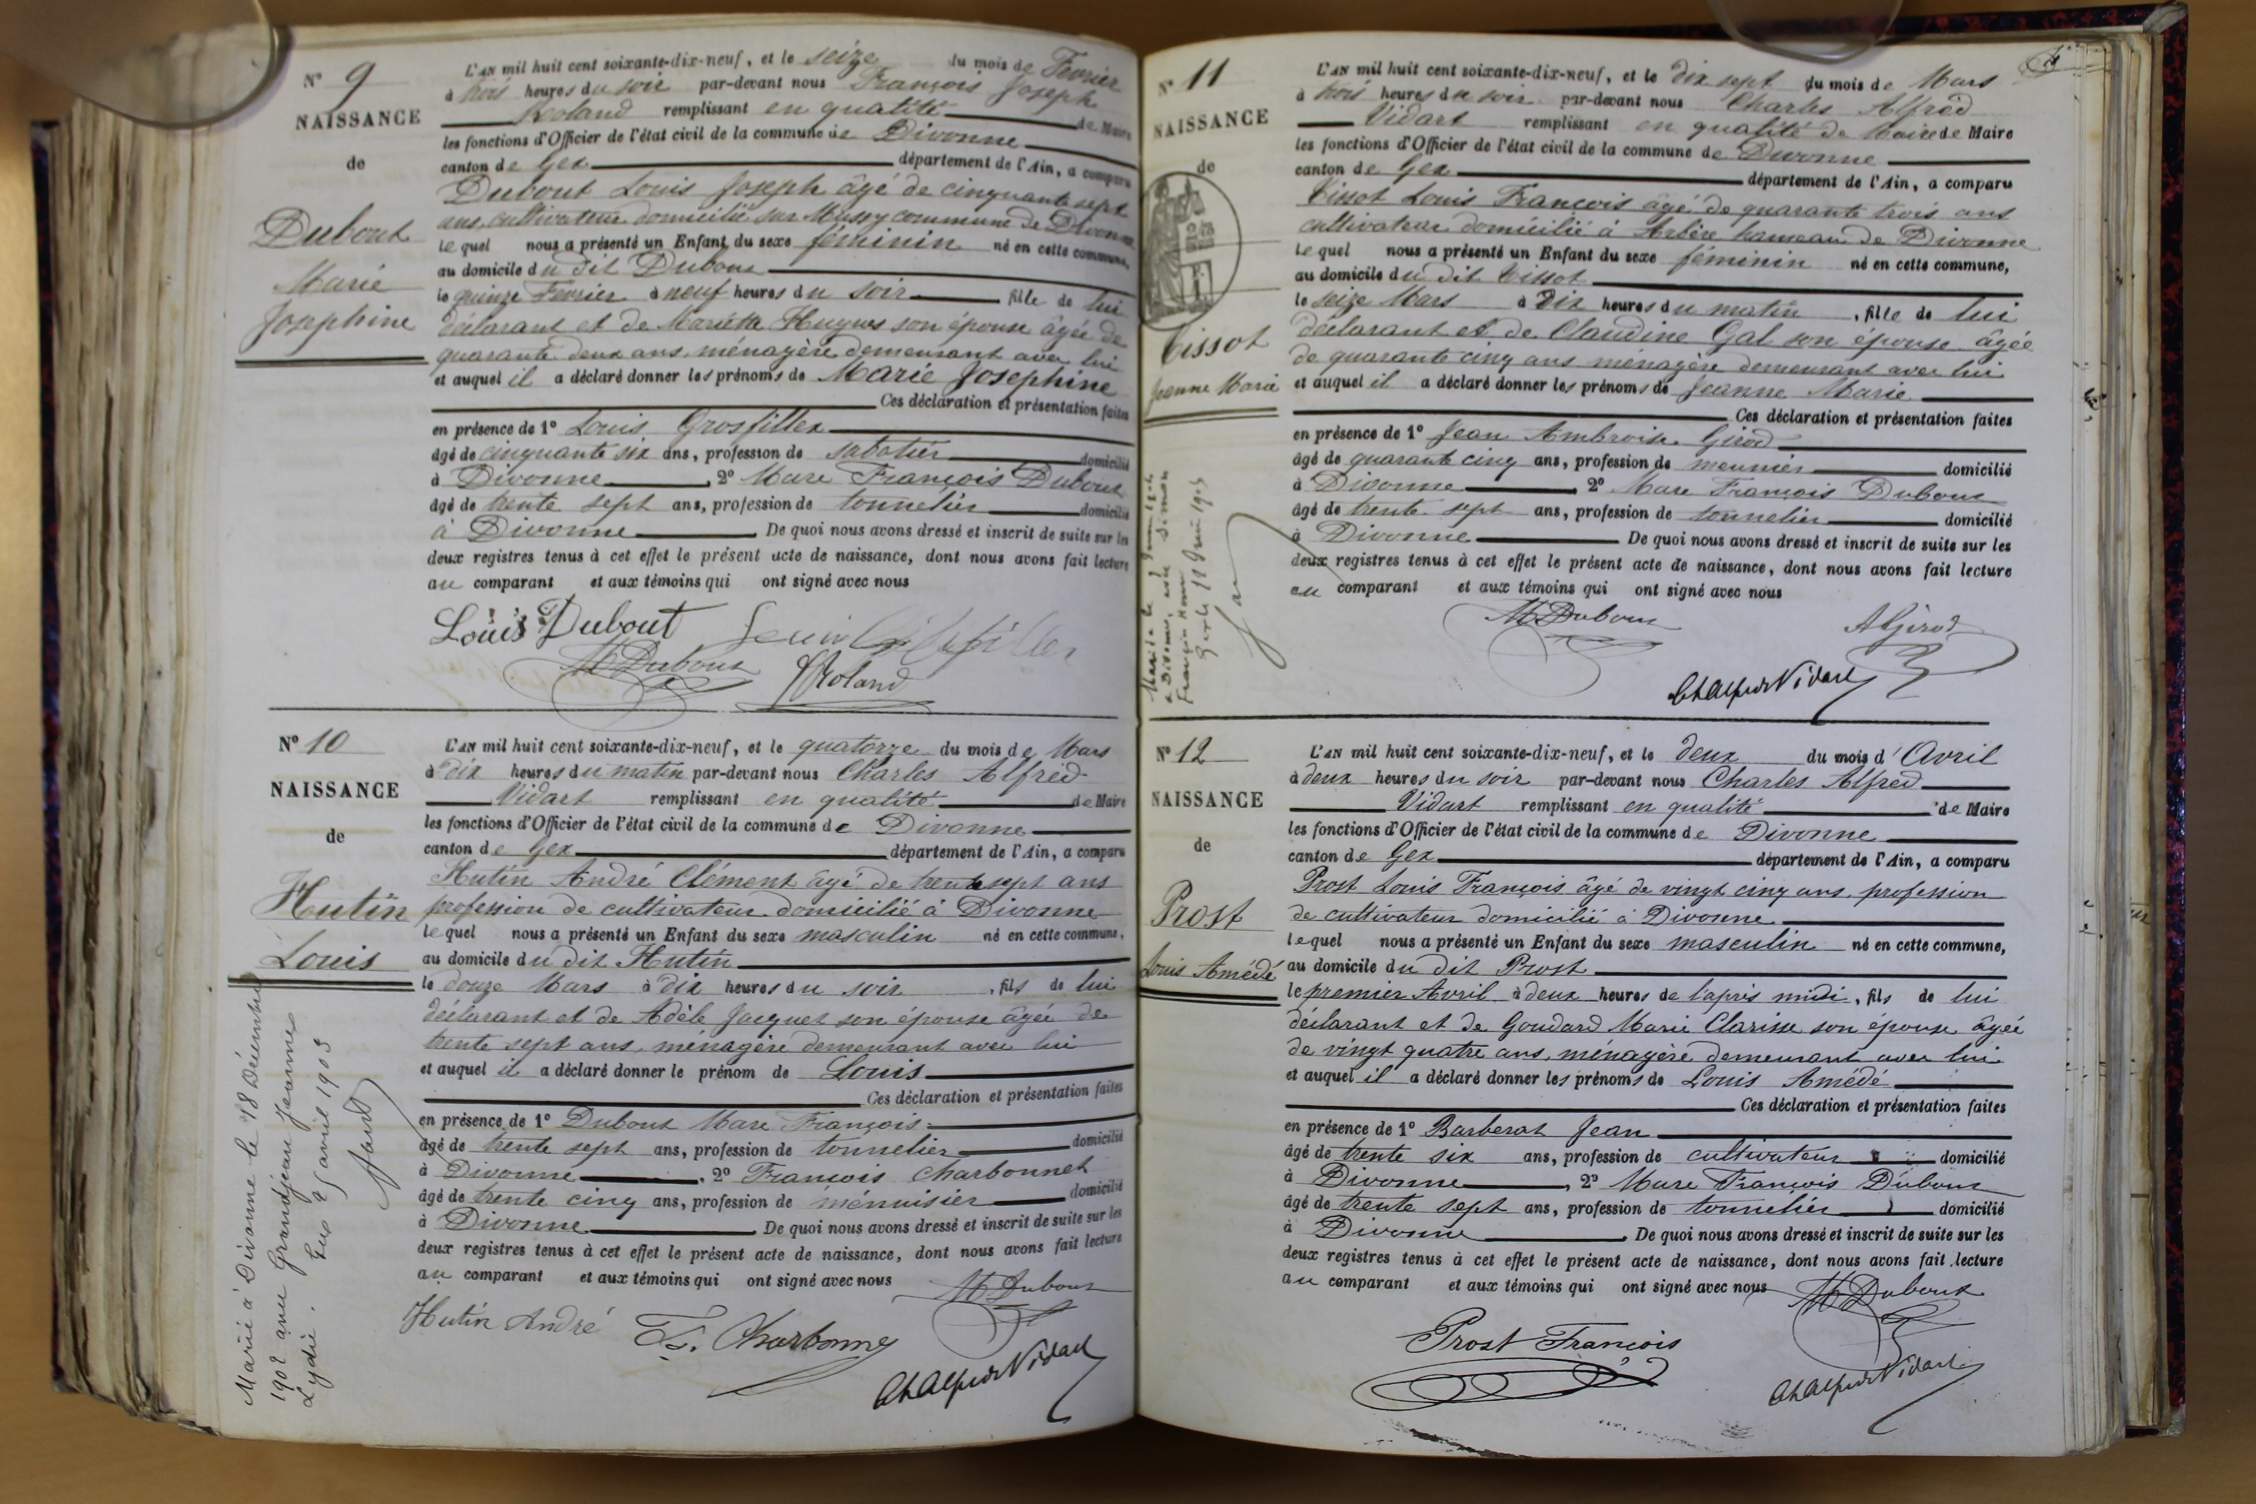 N° 9
NAISSANCE
de
Dubout
Marie
Josephine
L'AN mil huit cent soixante-dix-neuf, et le seize du mois de Fevrier
à trois heures du soir par-devant nous François Joseph
Roland remplissant en qualité de Maire
les fonctions d'Officier de l'état civil de la commune de Divonne
canton de Gex département de l'Ain, a comparu
Dubout Louis Joseph âgé de cinquante sept
ans, cultivateur domicilié sur Mussy commune de Divonne
le quel nous a présenté un Enfant du sexe féminin né en cette commune,
au domicile du dit Dubout
le quinze Fevrier à neuf heures du soir fille de lui
déclarant et de Mariette Hugues son épouse âgée de
quarante deux ans, ménagère demeurant avec lui
et auquel il a déclaré donner les prénoms de Marie Josephine
Ces déclaration et présentation faites
en présence de 1° Louis Grosfillex
âgé de cinquante six ans, profession de sabotier domicilié
à Divonne, 2° Marc François Dubout
âgé de trente sept ans, profession de tonnelier domicilié
à Divonne De quoi nous avons dressé et inscrit de suite sur les
deux registres tenus à cet effet le présent acte de naissance, dont nous avons fait lecture
au comparant et aux témoins qui ont signé avec nous
Louis Dubout
M Dubout Roland
N° 10
NAISSANCE
de
Hutin
Louis
Marié à Divonne le 18 Décembre
1902 avec Grandjean Jeanne
Lydie. Gex 25 avril 1903
L'AN mil huit cent soixante-dix-neuf, et le quatorze du mois de Mars
à dix heures du matin par-devant nous Charles Alfred
Vidart remplissant en qualité de Maire
les fonctions d'Officier de l'état civil de la commune de Divonne
canton de Gex département de l'Ain, a comparu
Hutin André Clément âgé de trente sept ans
profession de cultivateur domicilié à Divonne
le quel nous a présenté un Enfant du sexe masculin né en cette commune,
au domicile du dit Hutin
le douze Mars à dix heures du soir, fils de lui
déclarant et de Adèle Jacquet son épouse âgée de
trente sept ans, ménagère demeurant avec lui
et auquel il a déclaré donner le prénom de Louis
Ces déclaration et présentation faites
en présence de 1° Dubout Marc François
âgé de trente sept ans, profession de tonnelier domicilié
à Divonne, 2° François Charbonnet
âgé de trente cinq ans, profession de menuisier domicilié
à Divonne De quoi nous avons dressé et inscrit de suite sur les
deux registres tenus à cet effet le présent acte de naissance, dont nous avons fait lecture
au comparant et aux témoins qui ont signé avec nous
M Dubout
Hutin André F. Charbonney
Ch Alfred Vidart
N° 11
NAISSANCE
de
Tissot
Jeanne Marie
L'AN mil huit cent soixante-dix-neuf, et le dix sept du mois de Mars
à trois heures du soir par-devant nous Charles Alfred
Vidart remplissant en qualité de Maire de Maire
les fonctions d'Officier de l'état civil de la commune de Divonne
canton de Gex département de l'Ain, a comparu
Tissot Louis François âgé de quarante trois ans
cultivateur domicilié à Arbère hameau de Divonne
le quel nous a présenté un Enfant du sexe féminin né en cette commune,
au domicile du dit Tissot
le seize Mars à dix heures du matin, fille de lui
déclarant et de Claudine Gal son épouse âgée
de quarante cinq ans ménagère demeurant avec lui
et auquel il a déclaré donner les prénoms de Jeanne Marie
Ces déclaration et présentation faites
en présence de 1° Jean Ambroise Girod
âgé de quarante cinq ans, profession de meunier domicilié
à Divonne, 2° Marc François Dubout
âgé de trente sept ans, profession de tonnelier domicilié
à Divonne De quoi nous avons dressé et inscrit de suite sur les
deux registres tenus à cet effet le présent acte de naissance, dont nous avons fait lecture
au comparant et aux témoins qui ont signé avec nous
M Dubout A Girod
Ch Alfred Vidart
N° 12
NAISSANCE
de
Prost
Louis Amédé
L'AN mil huit cent soixante-dix-neuf, et le deux du mois d'Avril
à deux heures du soir par-devant nous Charles Alfred
Vidart remplissant en qualité de Maire
les fonctions d'Officier de l'état civil de la commune de Divonne
canton de Gex département de l'Ain, a comparu
Prost Louis François âgé de vingt cinq ans, profession
de cultivateur domicilié à Divonne
lequel nous a présenté un Enfant du sexe masculin né en cette commune,
au domicile du dit Prost
le premier Avril à deux heures de l'après midi, fils de lui
déclarant et de Goudard Marie Clarisse son épouse âgée
de vingt quatre ans, ménagère demeurant avec lui
et auquel il a déclaré donner les prénoms de Louis Amédé
Ces déclaration et présentation faites
en présence de 1° Barberat Jean
âgé de trente six ans, profession de cultivateur domicilié
à Divonne, 2° Marc François Dubout
âgé de trente sept ans, profession de tonnelier domicilié
à Divonne De quoi nous avons dressé et inscrit de suite sur les
deux registres tenus à cet effet le présent acte de naissance, dont nous avons fait lecture
au comparant et aux témoins qui ont signé avec nous
M Dubout
Prost François
Ch Alfred Vidart